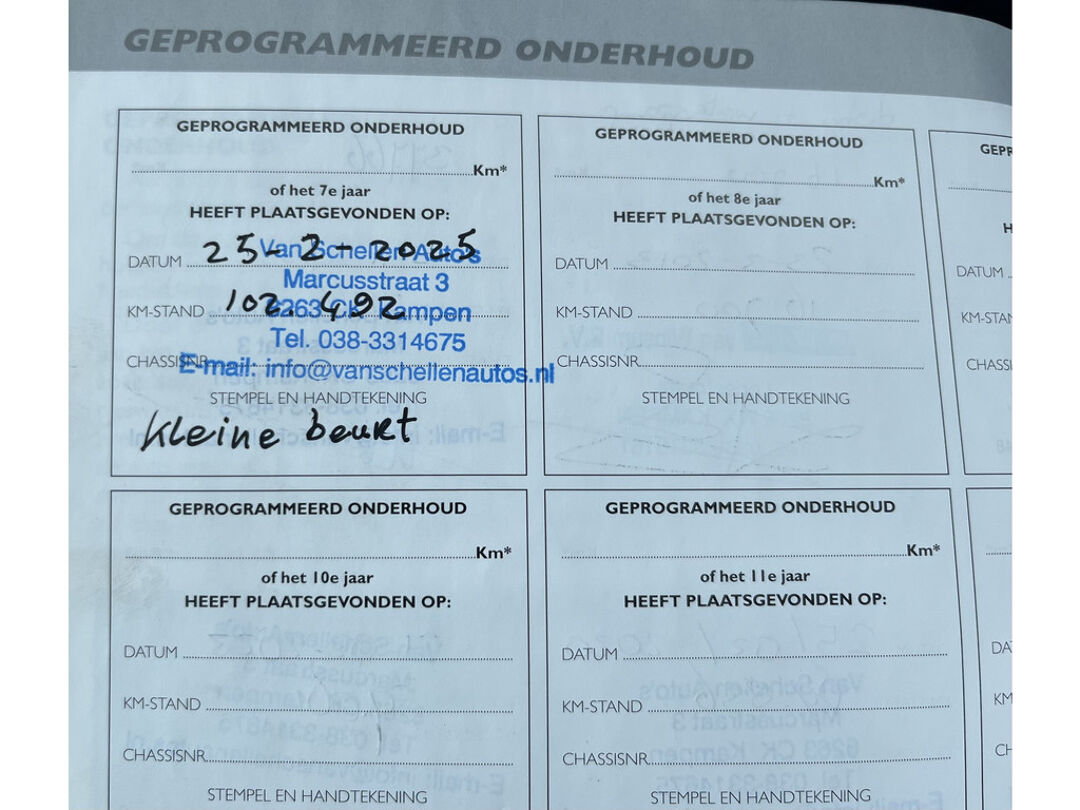 GEPROGRAMMEERD ONDERHOUD
GEPROGRAMMEERD ONDERHOUD
Km*
of het 7e jaar
HEEFT PLAATSGEVONDEN OP:
DATUM 25-2-2025
Van Schellen Auto's
Marcusstraat 3
KM-STAND 102.492
8263 CK Kampen
Tel. 038-3314675
CHASSISNR.
E-mail: info@vanschellenautos.nl
STEMPEL EN HANDTEKENING
kleine beurt
GEPROGRAMMEERD ONDERHOUD
Km*
of het 8e jaar
HEEFT PLAATSGEVONDEN OP:
DATUM
KM-STAND
CHASSISNR.
STEMPEL EN HANDTEKENING
GEPR
H
DATUM
KM-STAN
CHASSI
GEPROGRAMMEERD ONDERHOUD
Km*
of het 10e jaar
HEEFT PLAATSGEVONDEN OP:
DATUM
KM-STAND
CHASSISNR.
STEMPEL EN HANDTEKENING
GEPROGRAMMEERD ONDERHOUD
Km*
of het 11e jaar
HEEFT PLAATSGEVONDEN OP:
DATUM
KM-STAND
CHASSISNR.
STEMPEL EN HANDTEKENING
DA
KM
CH